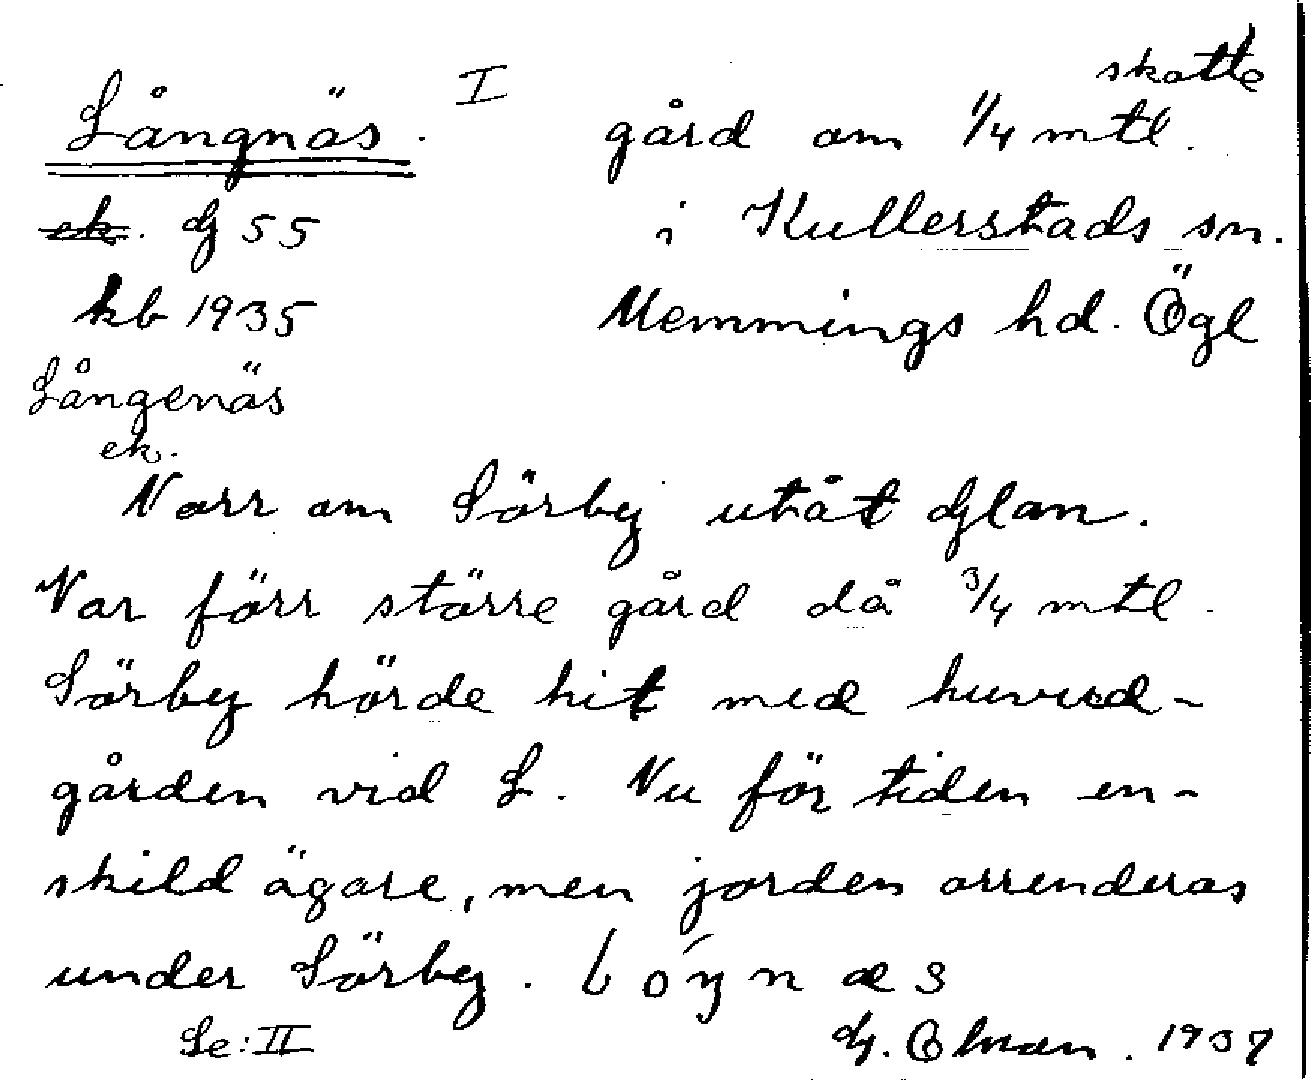 Långnäs. I
skatte
gård om 1/4 mtl.
ek. G 55
i Kullerstads sn.
kb 1935
Memmings hd. Ögl
Långenäs
ek.
Norr om Sörby utåt Glan.
Var förr större gård då 3/4 mtl.
Sörby hörde hit med huvud-
gården vid L. Nu för tiden en-
skild ägare, men jorden arrenderas
under Sörby. lóŋnæs
Se: II
G. Ekman. 1937